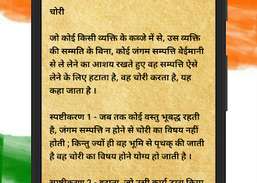 चोरी
जो कोई किसी व्यक्ति के कब्जे में से, उस व्यक्ति
की सम्मति के बिना, कोई जंगम सम्पत्ति बेईमानी
से ले लेने का आशय रखते हुए वह सम्पत्ति ऐसे
लेने के लिए हटाता है, वह चोरी करता है, यह
कहा जाता है ।
स्पष्टीकरण 1 - जब तक कोई वस्तु भूबद्ध रहती
है, जंगम सम्पत्ति न होने से चोरी का विषय नहीं
होती ; किन्तु ज्यों ही वह भूमि से पृथक् की जाती
है वह चोरी का विषय होने योग्य हो जाती है ।
स्पष्टीकरण 2 -